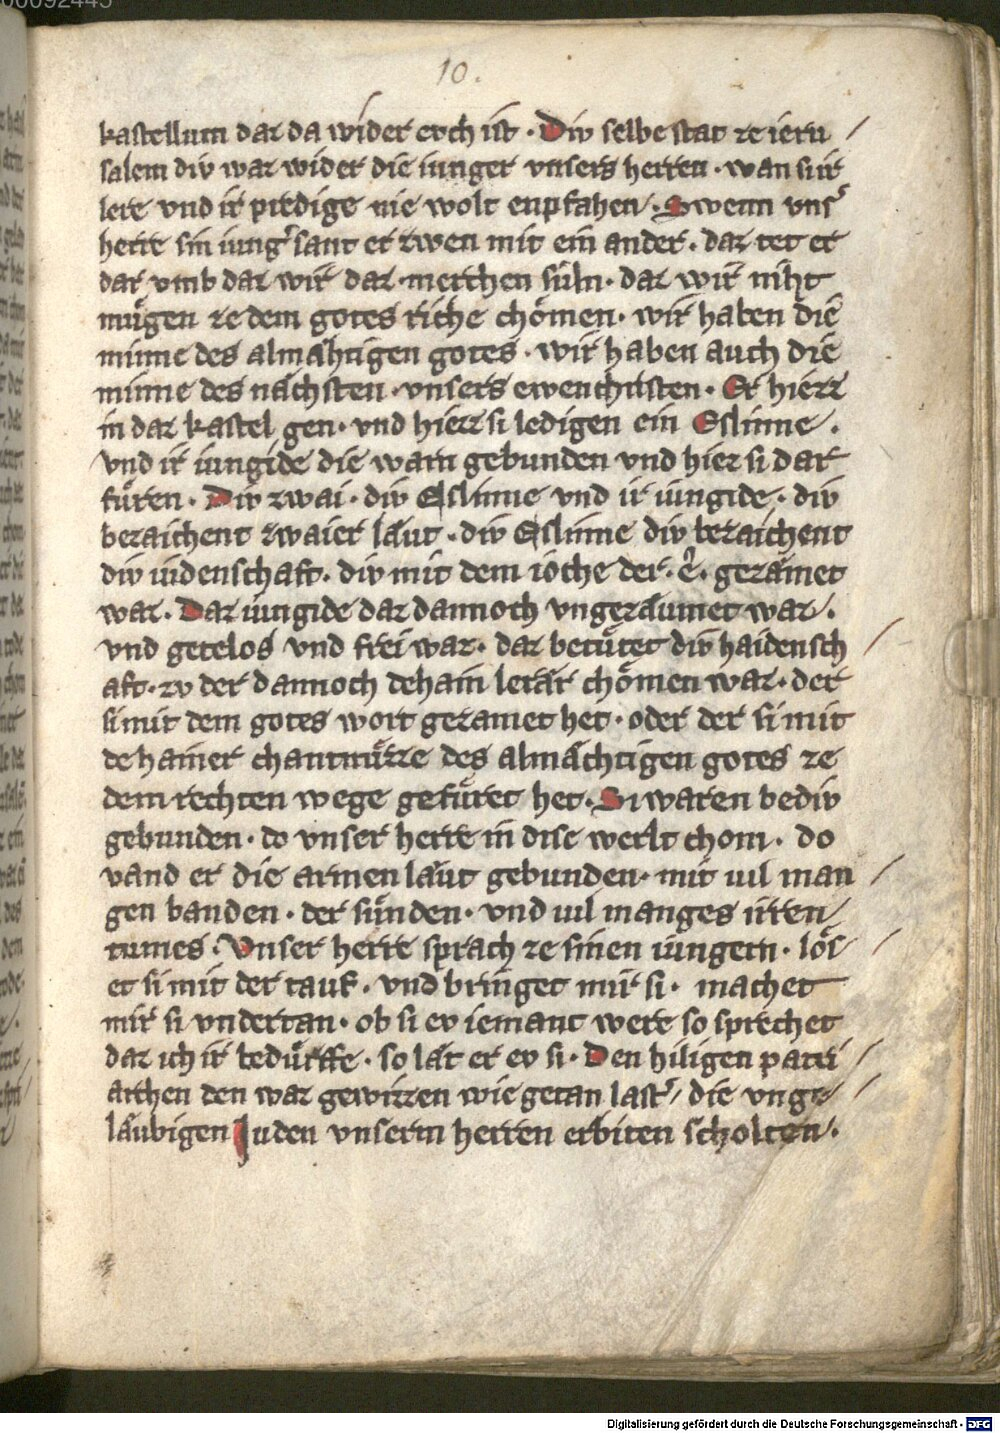 00092445
10.
kastellum daz da wider evch ist · Div selbe stat ze ieru
salem div waz wider die iunger vnsers herren · wan si ir
lere vnd ir predige nie wolt enpfahen · Swenn vnsˀ
herre sin iungˀ sant er zwen mit ein ander · daz tet er
dar vmb daz wir daz merchen suln · daz wir niht
mugen ze dem gotes riche chömen · wir haben die
minne des almahtigen gotes · wir haben auch die
minne des nahsten · vnsers ewenchristen · Er hiezz
in daz kastel gen · vnd hiezz si ledigen ein Eslinne ·
vnd ir iungide die warn gebunden vnd hiez si dar
fůren · Div zwai · div Eslinne vnd ir iungide · div
bezaichent zwaier laut · div Eslinne div bezaichent
div iudenschaft · div mit dem ioche der · e · gezamet
waz · Daz iungide daz dannoch vngezaumet waz ·
vnd getelos vnd frei waz · daz betutet div haidensch
aft · zv der dannoch dehain lerar chömen waz · der
si mit dem gotes wort gezamet het · oder der si mit
dehainer chantnuzze des almachtigen gotes ze
dem rechten wege gefuret het · Si waren bediv
gebunden · do vnser herre in dise werlt chom · do
vand er die armen laut gebunden · mit uil man
gen banden · der sunden · vnd uil manges irren
tumes · Vnser herre sprach ze sinen iungern · lös
et si mit der tauf · vnd bringet mir si · machet
mir si vndertan · ob si ev iemant were so sprechet
daz ich ir bedurffe · so lat er ev si · Den hiligen patri
archen den waz gewizzen wie getan lastˀ die vnge
laubigen Juden vnserm herren erbiten scholten ·
Digitalisierung gefördert durch die Deutsche Forschungsgemeinschaft - DFG